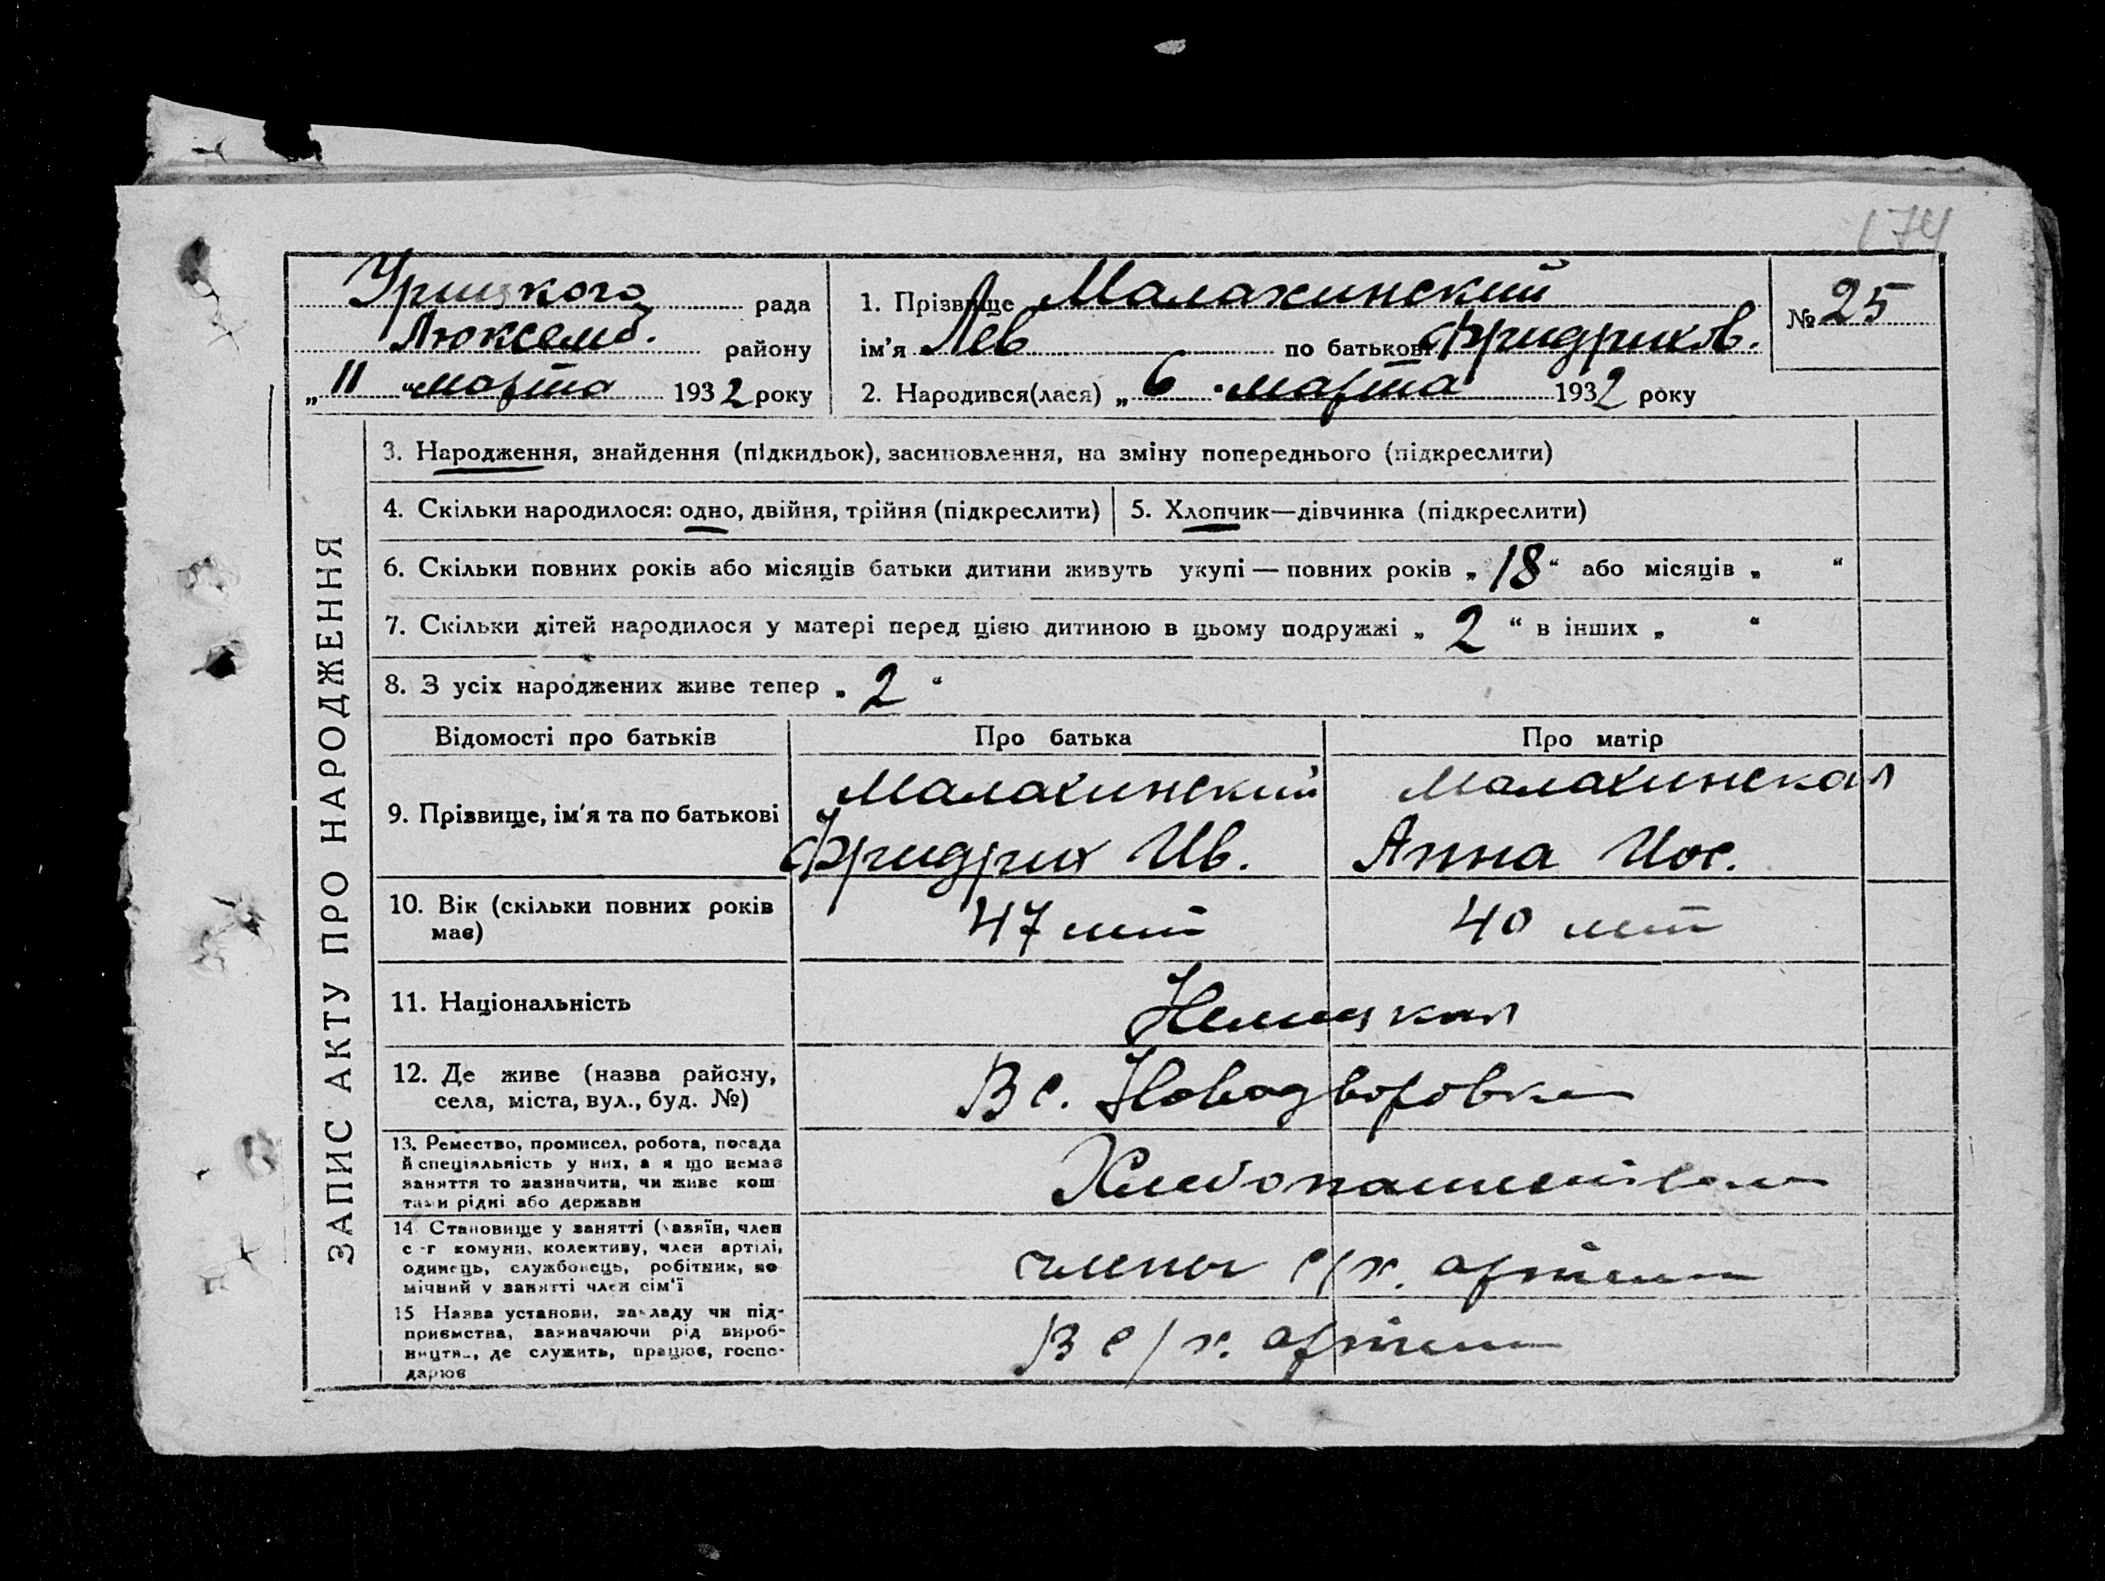 174
Урицкого рада
Люксемб. району
„ 11 “ марта 1932 року
1. Прізвище Малахинский
ім’я Лев по батькові Фридрихов.
2. Народився(лася) „ 6 “ марта 1932 року
№ 25
ЗАПИС АКТУ ПРО НАРОДЖЕННЯ
3. Народження, знайдення (підкидьок), засиновлення, на зміну попереднього (підкреслити)
4. Скільки народилося: одно, двійня, трійня (підкреслити)
5. Хлопчик—дівчинка (підкреслити)
6. Скільки повних років або місяців батьки дитини живуть укупі — повних років „ 18 “ або місяців „ “
7. Скільки дітей народилося у матері перед цією дитиною в цьому подружжі „ 2 “ в інших „ “
8. З усіх народжених живе тепер „ 2 “
Відомості про батьків Про батька Про матір
9. Прізвище, ім’я та по батькові
Малахинский
Фридрих Ив.
Малахинская
Анна Иос.
10. Вік (скільки повних років
має)
47 лет
40 лет
11. Національність
Немецкая
12. Де живе (назва району,
села, міста, вул., буд. №)
В с. Новодворовка
13. Ремество, промисел, робота, посада
й спеціяльність у них, а я що немає
заняття то зазначити, чи живе кош
тами рідні або держави
Хлебопашеством
14. Становище у занятті (хазяїн, член
с-г комуни, колективу, член артілі,
одинець, службовець, робітник, по
мічний у занятті член сім’ї
члены с/х. артели
15 Назва установи, закладу чи під-
приємства, зазначаючи рід вироб-
ництв., де служить, працює, госпо-
дарює
В с/х. артели